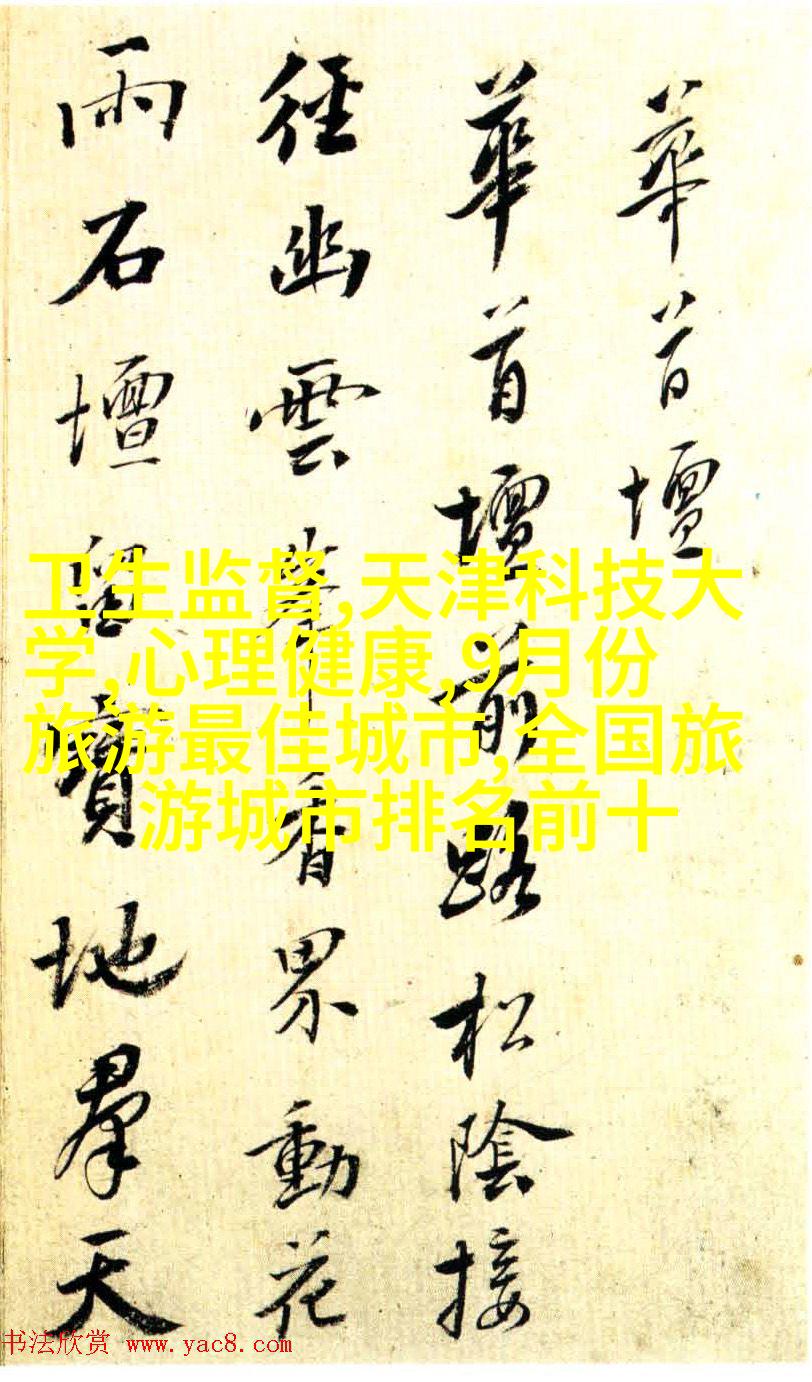 華首壇
華首壇前路松陰接
徑幽雲峯香界動花
雨石壇留寶地羣天
卫生监督,天津科技大
学,心理健康,9月份
旅游最佳城市,全国旅
游城市排名前十
书法欣赏 www.yac8.com